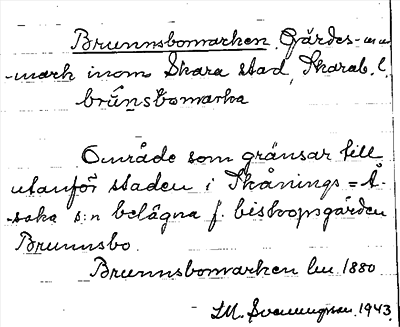 Brunnsbomarken, Gärdes-
-mark inom Skara stad, Skarab. l.
brúnsbomarka
Område som gränsar till
utanför staden i Skånings=Å-
-saka s:n belägna f. biskopsgården
Brunnsbo.
Brunnsbomarken lm 1880
LM. Svenungson 1943.